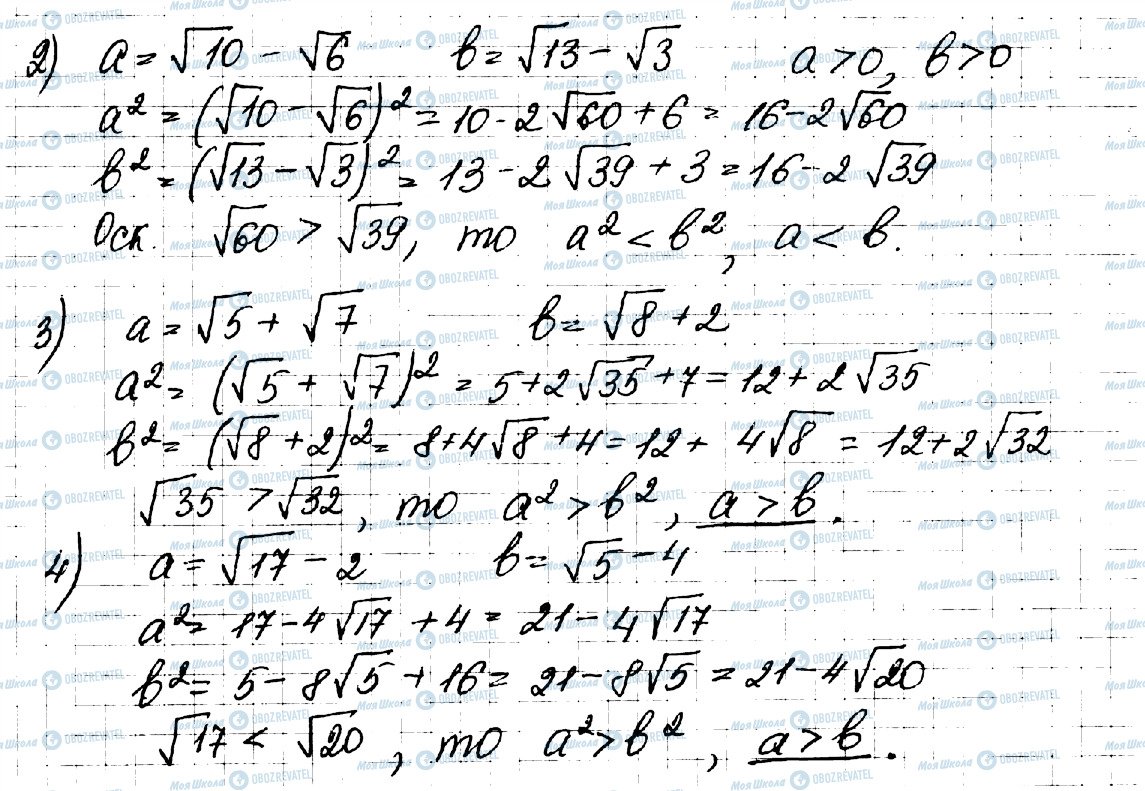 2) a = √10 − √6   b = √13 − √3   a > 0, b > 0
a² = (√10 − √6)² = 10 − 2√60 + 6 = 16 − 2√60
b² = (√13 − √3)² = 13 − 2√39 + 3 = 16 − 2√39
Оск. √60 > √39, то a² < b², a < b.
3) a = √5 + √7   b = √8 + 2
a² = (√5 + √7)² = 5 + 2√35 + 7 = 12 + 2√35
b² = (√8 + 2)² = 8 + 4√8 + 4 = 12 + 4√8 = 12 + 2√32
√35 > √32, то a² > b², a > b.
4) a = √17 − 2   b = √5 − 4
a² = 17 − 4√17 + 4 = 21 − 4√17
b² = 5 − 8√5 + 16 = 21 − 8√5 = 21 − 4√20
√17 < √20, то a² > b², a > b.